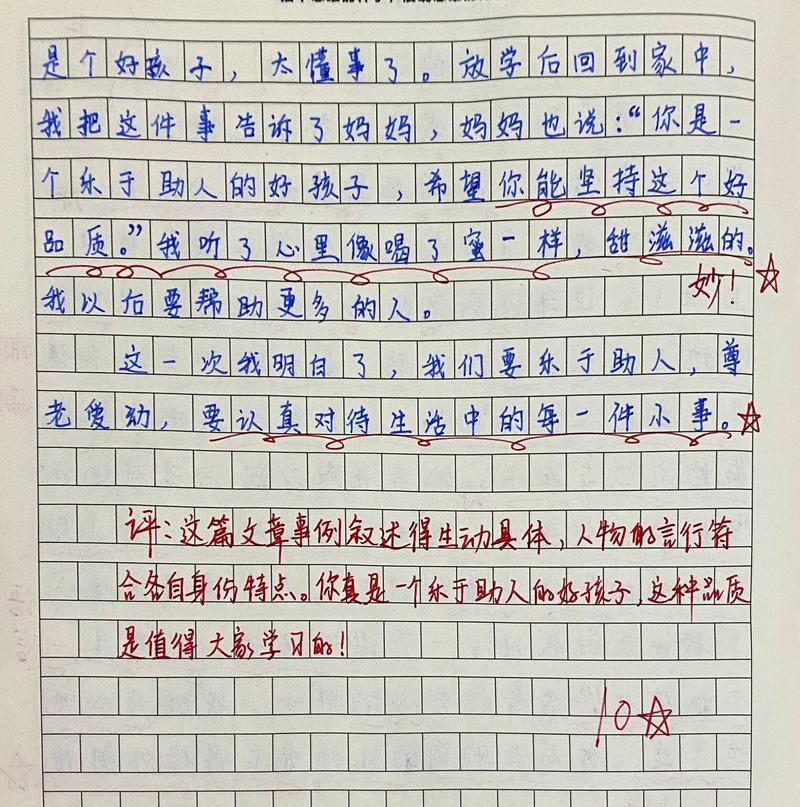 是个好孩子，太懂事了。放学后回到家中，
我把这件事告诉了妈妈，妈妈也说：“你是一
个乐于助人的好孩子，希望你能坚持这个好
品质。”我听了心里像喝了蜜一样，甜滋滋的。
妙！☆
我以后要帮助更多的人。
这一次我明白了，我们要乐于助人，尊
老爱幼，要认真对待生活中的每一件小事。☆
评：这篇文章事例叙述得生动具体，人物的言行符
合各自身份特点。你真是一个乐于助人的好孩子，这种品质
是值得大家学习的！
10☆